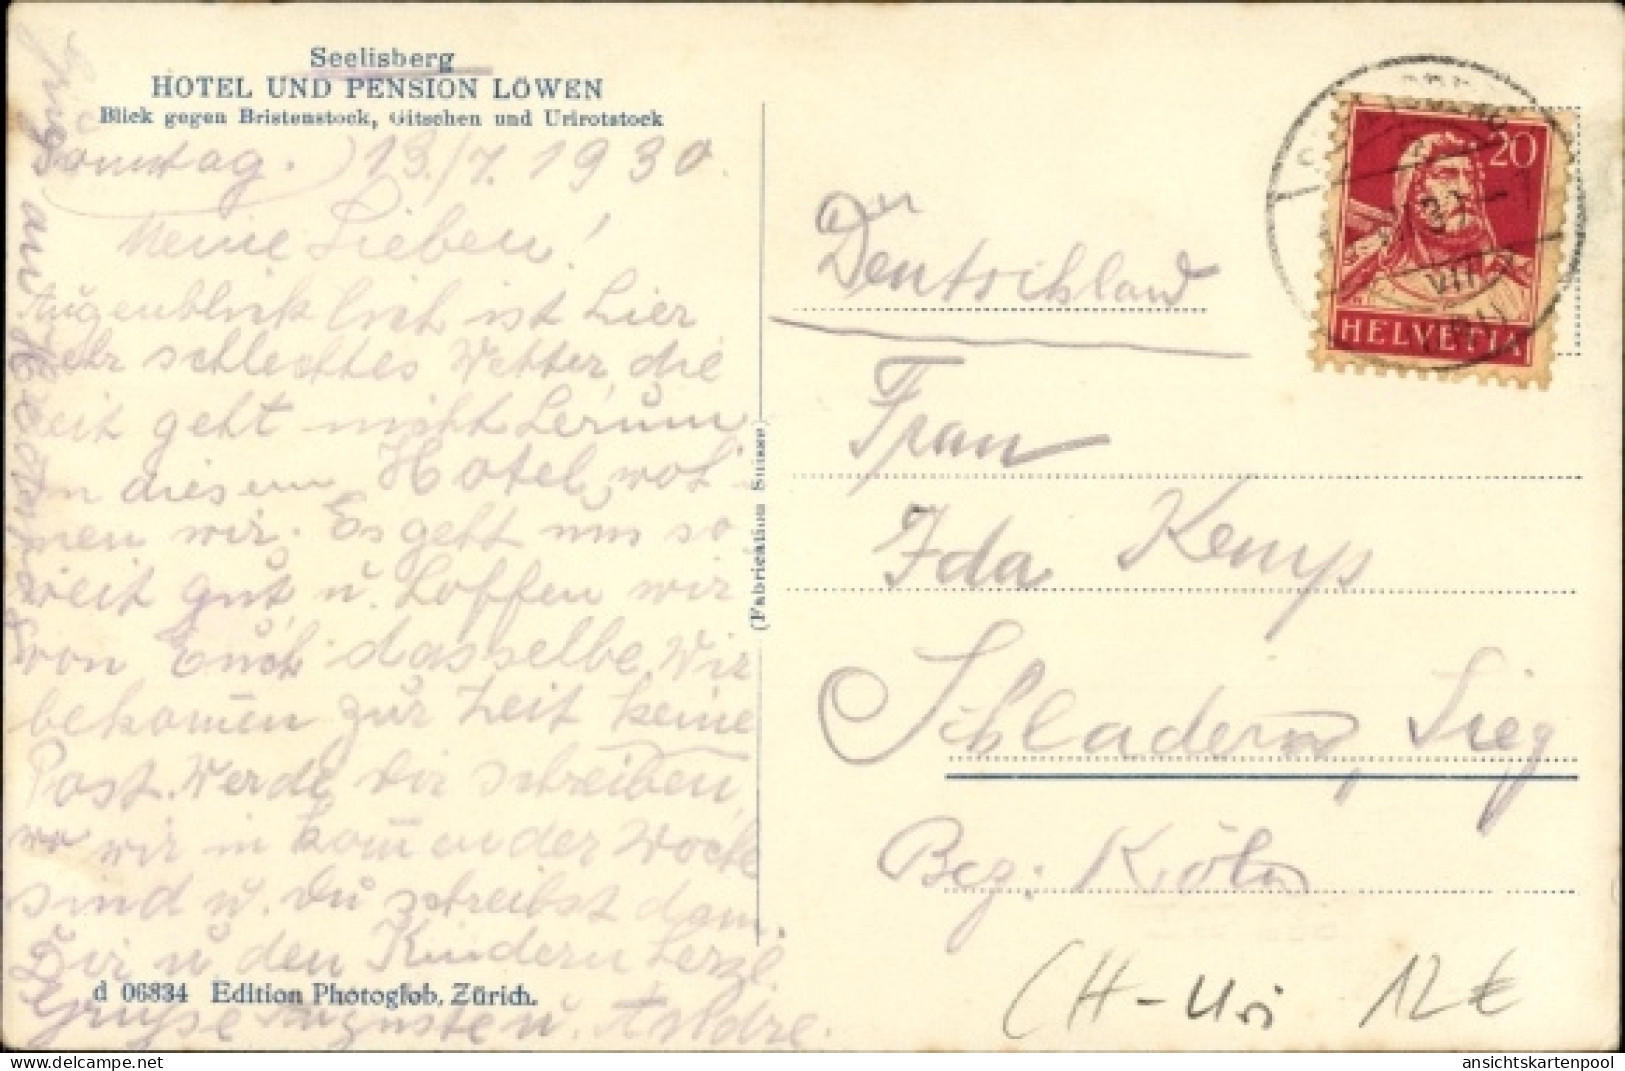 Seelisberg
HOTEL UND PENSION LÖWEN
Blick gegen Bristenstock, Gitschen und Urirotstock
Sonntag. 13./7. 1930.
Meine Lieben!
Augenblicklich ist hier
sehr schlechtes Wetter, die
Zeit geht nicht herum
In diesem Hotel woh
nen wir. Es geht uns so
weit gut u. hoffen wir
von Euch dasselbe. Wir
bekom̅en zur Zeit keine
Post. Werde Dir schreiben,
wo wir in kom̅ender Woche
sind u. Du schreibst dann.
Dir u den Kindern herzl.
Grüsse Auguste u.
d 06834 Edition Photoglob, Zürich.
(Fabrication Suisse)
20
HELVETIA
VII
Deutschland
Frau
Ida Kemp
Schladern, Sieg
Bez. Köln
CH-Uri 12€
delcampe.net
ansichtskartenpool